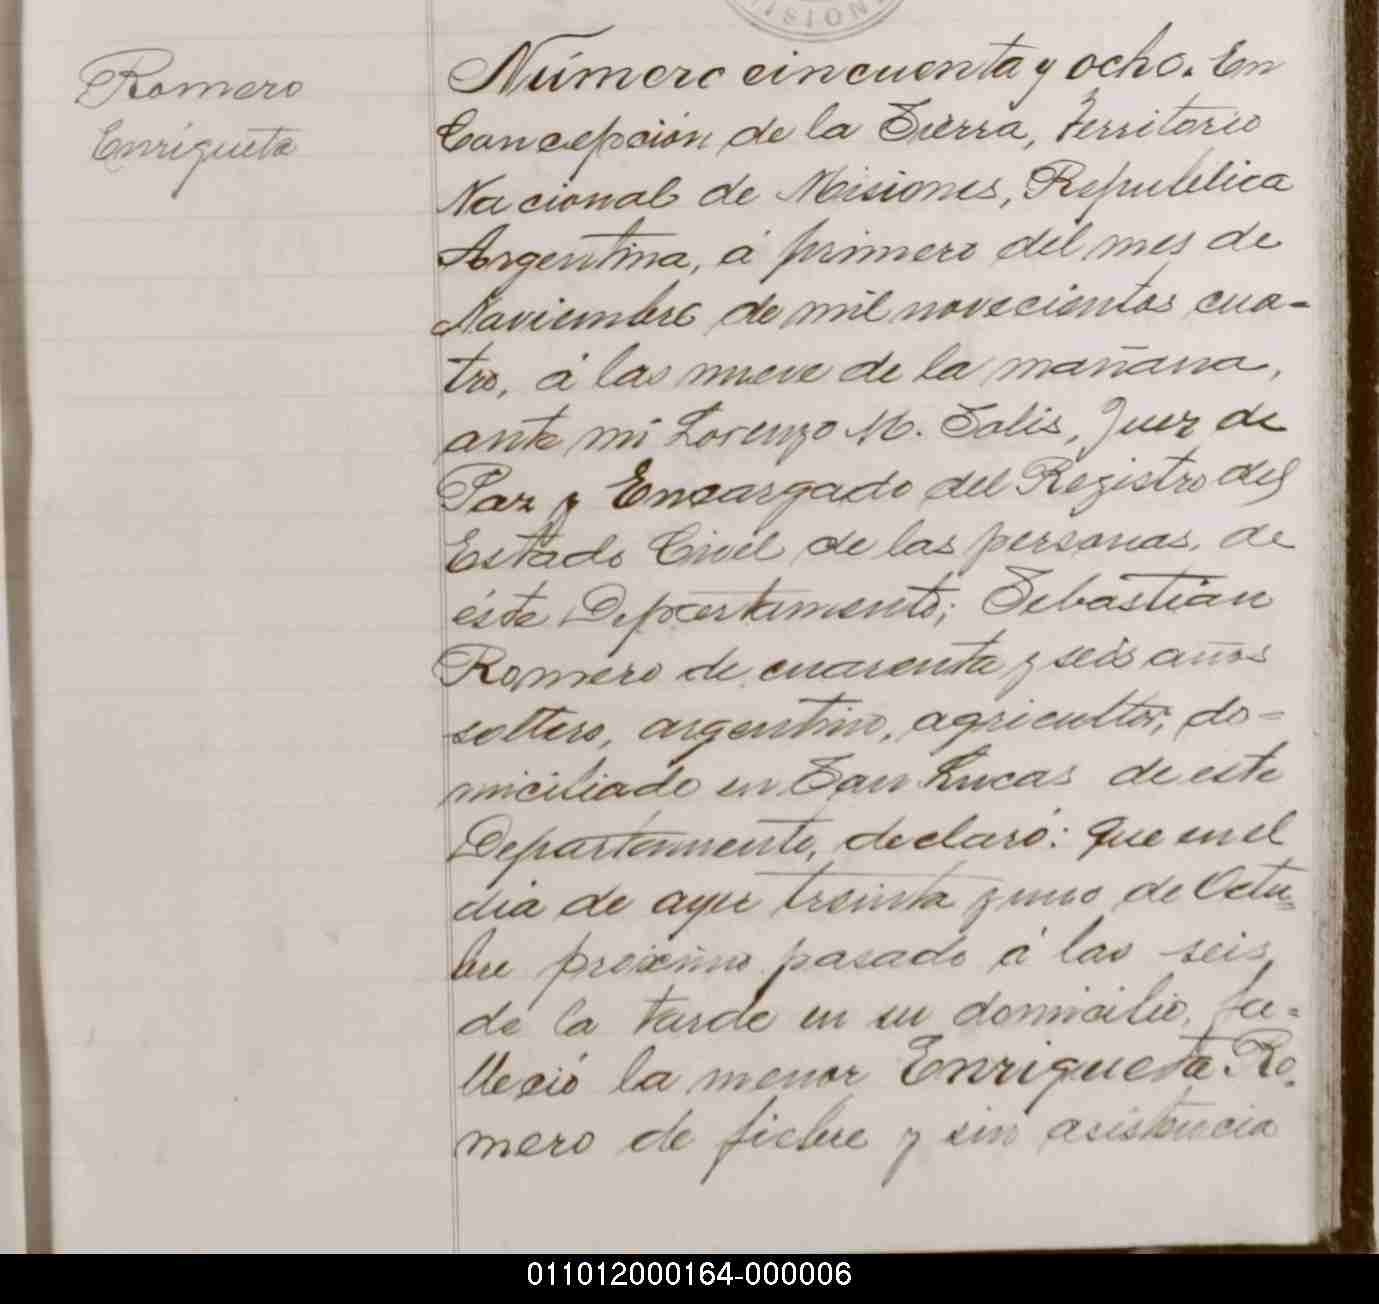 MISIONE
Romero
Enriqueta
Número cincuenta y ocho. En
Concepción de la Sierra, Territorio
Nacional de Misiones, Republica
Argentina, á primero del mes de
Noviembre de mil novecientos cua-
tro, á las nueve de la mañana,
ante mi Lorenzo M. Solis, Juez de
Paz y Encargado del Registro del
Estado Civil de las personas, de
éste Departamento; Sebastián
Romero de cuarenta y seis años
soltero, argentino, agricultor, do-
miciliado en San Lucas de este
Departamento, declaró: Que en el
dia de ayer treinta y uno de Octu-
bre próximo pasado á las seis
de la tarde en su domicilio, fa-
lleció la menor Enriqueta Ro-
mero de fiebre y sin asistencia
011012000164-000006